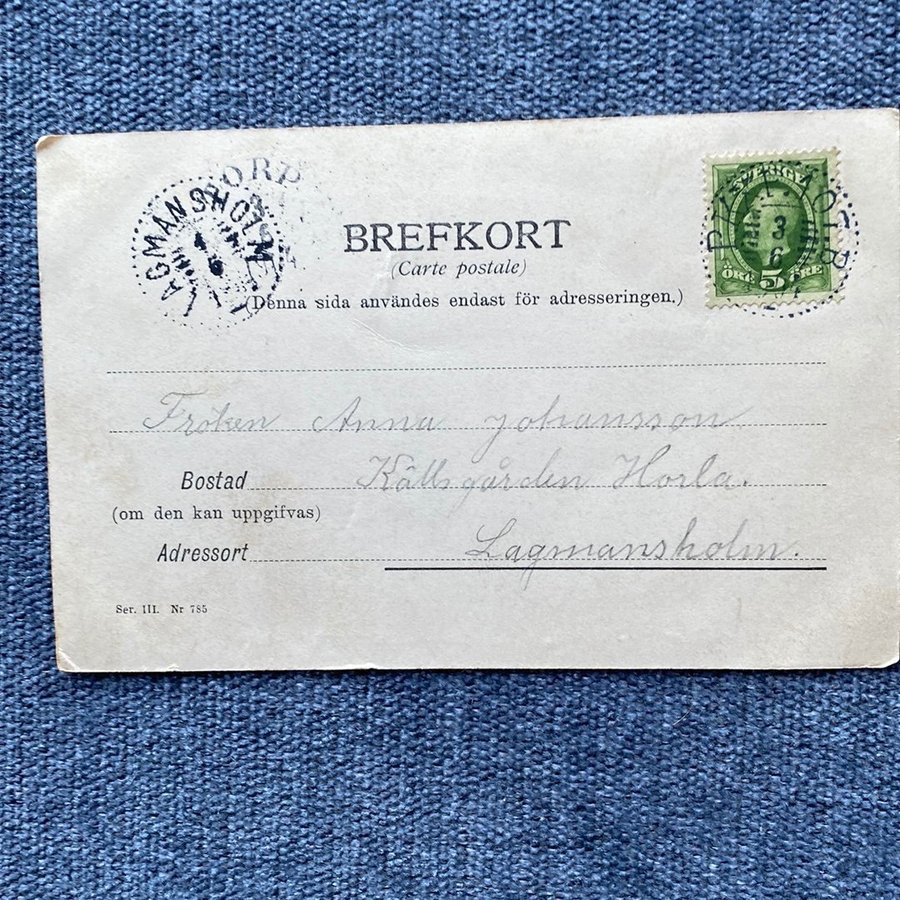 ORP
LAGMANSHOLM
BREFKORT
(Carte postale)
(Denna sida användes endast för adresseringen.)
SVERIGE
3
6
ÖRE 5 ÖRE
Fröken Anna Johansson
Bostad Källsgården Horla.
(om den kan uppgifvas)
Adressort Lagmansholm.
Ser. III. Nr 785